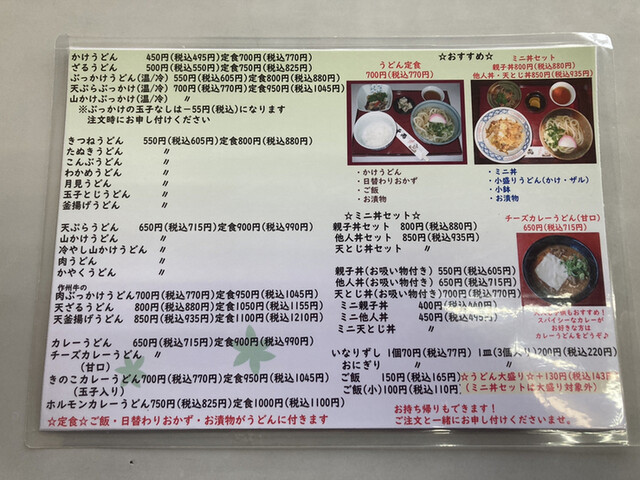 かけうどん 450円(税込495円)定食700円(税込770円)
ざるうどん 500円(税込550円)定食750円(税込825円)
ぶっかけうどん(温/冷) 550円(税込605円)定食800円(税込880円)
天ぷらぶっかけ(温/冷) 700円(税込770円)定食950円(税込1045円)
山かけぶっかけ(温/冷) 〃
※ぶっかけの玉子なしは−55円(税込)になります
注文時にお申し付けください
きつねうどん 550円(税込605円)定食800円(税込880円)
たぬきうどん 〃
こんぶうどん 〃
わかめうどん 〃
月見うどん 〃
玉子とじうどん 〃
釜揚げうどん 〃
天ぷらうどん 650円(税込715円)定食900円(税込990円)
山かけうどん 〃
冷やし山かけうどん 〃
肉うどん 〃
かやくうどん 〃
作州牛の
肉ぶっかけうどん700円(税込770円)定食950円(税込1045円)
天ざるうどん 800円(税込880円)定食1050円(税込1155円)
天釜揚げうどん 850円(税込935円)定食1100円(税込1210円)
カレーうどん 650円(税込715円)定食900円(税込990円)
チーズカレーうどん 〃
(甘口)
きのこカレーうどん700円(税込770円)定食950円(税込1045円)
(玉子入り)
ホルモンカレーうどん750円(税込825円)定食1000円(税込1100円)
☆定食☆ご飯・日替わりおかず・お漬物がうどんに付きます
☆おすすめ☆
うどん定食
700円(税込770円)
・かけうどん
・日替わりおかず
・ご飯
・お漬物
ミニ丼セット
親子丼800円(税込880円)
他人丼・天とじ丼850円(税込935円)
・ミニ丼
・小盛りうどん(かけ・ザル)
・小鉢
・お漬物
☆ミニ丼セット☆
親子丼セット 800円(税込880円)
他人丼セット 850円(税込935円)
天とじ丼セット 〃
親子丼(お吸い物付き) 550円(税込605円)
他人丼(お吸い物付き) 650円(税込715円)
天とじ丼(お吸い物付き)700円(税込770円)
ミニ親子丼 400円(税込440円)
ミニ他人丼 450円(税込495円)
ミニ天とじ丼 〃
チーズカレーうどん(甘口)
650円(税込715円)
おすすめ!
スパイシーなカレーが
お好きな方は
カレーうどんをどうぞ♪
いなりずし 1個70円(税込77円) 1皿(3個入り)200円(税込220円)
おにぎり 〃 〃
ご飯 150円(税込165円)
☆うどん大盛り☆+130円(税込143円)
ご飯(小)100円(税込110円)
(ミニ丼セットは大盛り対象外)
お持ち帰りもできます!
ご注文と一緒にお申し付けくださいませ。